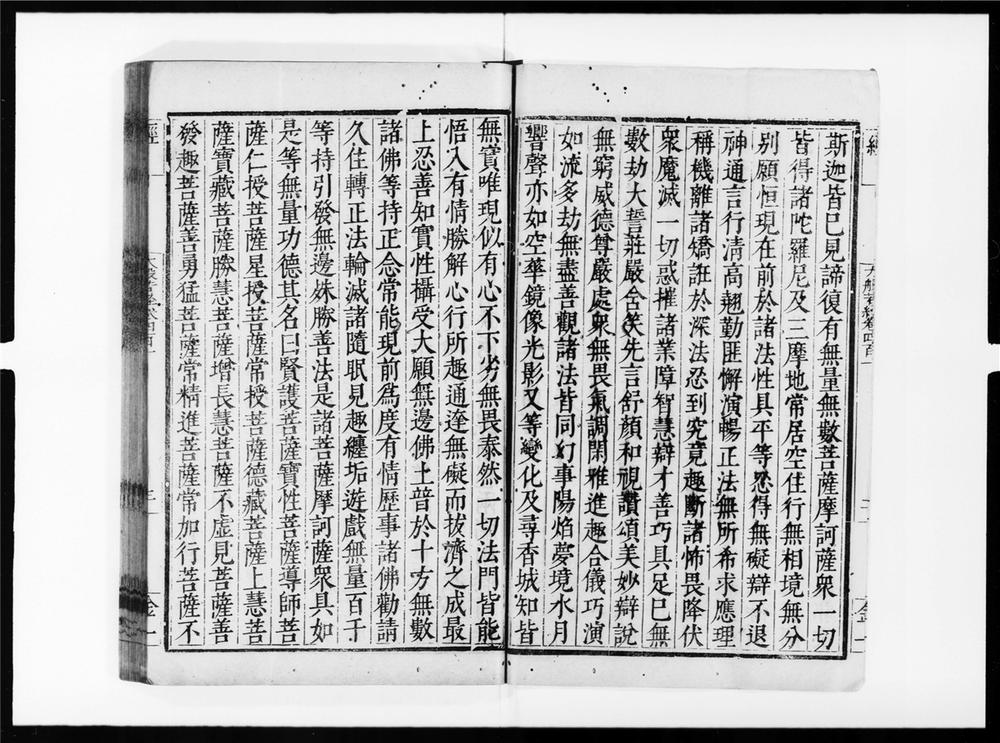 斯迦皆已見諦復有無量無數菩薩摩訶薩衆一切
皆得諸陀羅尼及三摩地常居空住行無相境無分
別願恒現在前於諸法性具平等忍得無礙辯不退
神通言行清高翹勤匪懈演暢正法無所希求應理
稱機離諸矯誑於深法忍到究竟趣斷諸怖畏降伏
衆魔滅一切惑摧諸業障智慧辯才善巧具足已無
數劫大誓莊嚴含笑先言舒顔和視讚頌美妙辯說
無窮威德尊嚴處衆無畏氣調閑雅進趣合儀巧演
如流多劫無盡善觀諸法皆同幻事陽焰夢境水月
響聲亦如空華鏡像光影又等變化及尋香城知皆
無實唯現似有心不下劣無畏泰然一切法門皆能
悟入有情勝解心行所趣通達無礙而拔濟之成最
上忍善知實性攝受大願無邊佛土普於十方無數
諸佛等持正念常能現前爲度有情歷事諸佛勸請
久住轉正法輪滅諸隨眠見趣纏垢遊戲無量百千
等持引發無邊殊勝善法是諸菩薩摩訶薩衆具如
是等無量功德其名曰賢護菩薩寶性菩薩導師菩
薩仁授菩薩星授菩薩常授菩薩德藏菩薩上慧菩
薩寶藏菩薩勝慧菩薩增長慧菩薩不虛見菩薩善
發趣菩薩善勇猛菩薩常精進菩薩常加行菩薩不